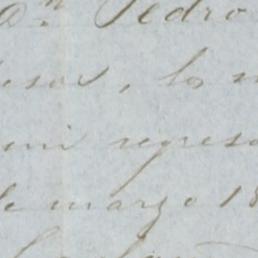 Dn Pedro
pesos, los
mi regreso
de marzo 18